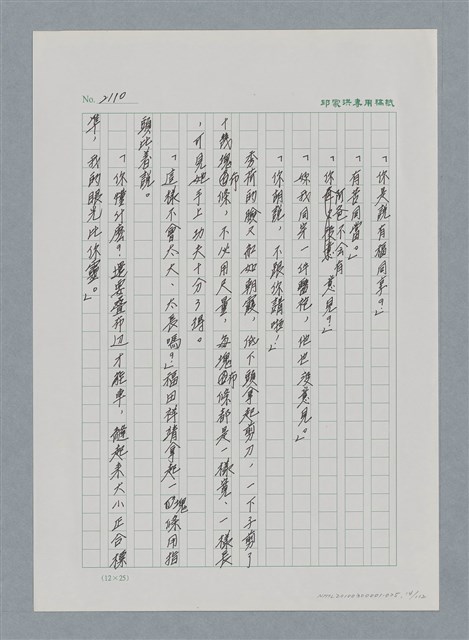 No. 2110
邱家洪專用稿紙
「你是說有福同享?」
「有苦同當。」
「你阿爸不會有意見?」
「妳我同穿一件醬袍,他也沒意見。」
「你胡說,不跟你講啦!」
秀荷的臉又紅如朝霞,低下頭拿起剪刀,一下子剪了
十幾塊布條,不必用尺量,每塊布條都是一樣寬、一樣長
,可見她手上功夫十分了得。
「這樣不會太大、太長嗎?」福田祥靖拿起一塊布條用指
頭比著說。
「你懂什麼?還要疊布边才能車,縫起來大小正合標
準,我的眼光比你靈。」
(12×25)